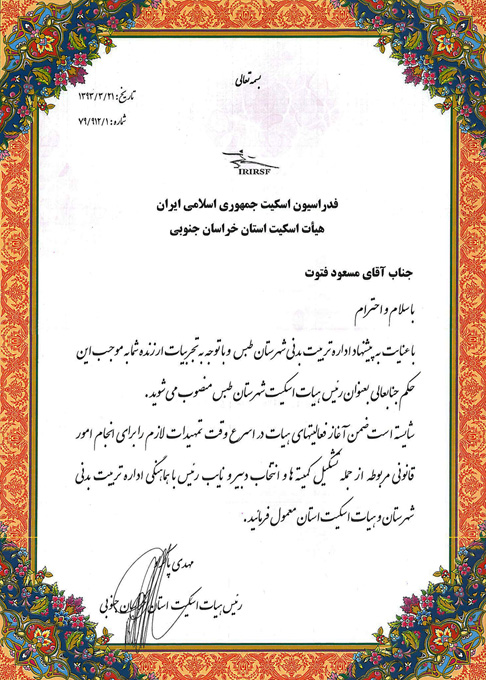 بسمه تعالی
تاریخ: ۱۳۹۳/۳/۲۱
شماره: ۷۹/۹۱۲/۱
IRIRSF
فدراسیون اسکیت جمهوری اسلامی ایران
هیأت اسکیت استان خراسان جنوبی
جناب آقای مسعود فتوت
باسلام و احترام
با عنایت به پیشنهاد اداره تربیت بدنی شهرستان طبس و با توجه به تجربیات ارزنده شما به موجب این
حکم جنابعالی بعنوان رئیس هیات اسکیت شهرستان طبس منصوب می شوید.
شایسته است ضمن آغاز فعالیتهای هیات در اسرع وقت تمهیدات لازم را برای انجام امور
قانونی مربوطه از جمله تشکیل کمیته ها و انتخاب دبیر و نایب رئیس با هماهنگی اداره تربیت بدنی
شهرستان و هیات اسکیت استان معمول فرمائید.
مهدی
رئیس هیات اسکیت استان خراسان جنوبی